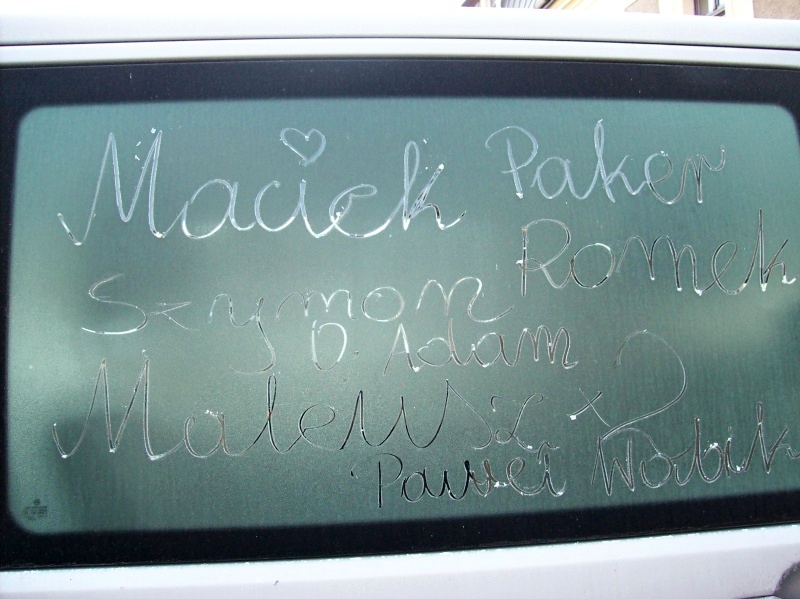 Maciek Paker
Romek
Szymon
O. Adam
Mateusz x2
Paweł Wobik